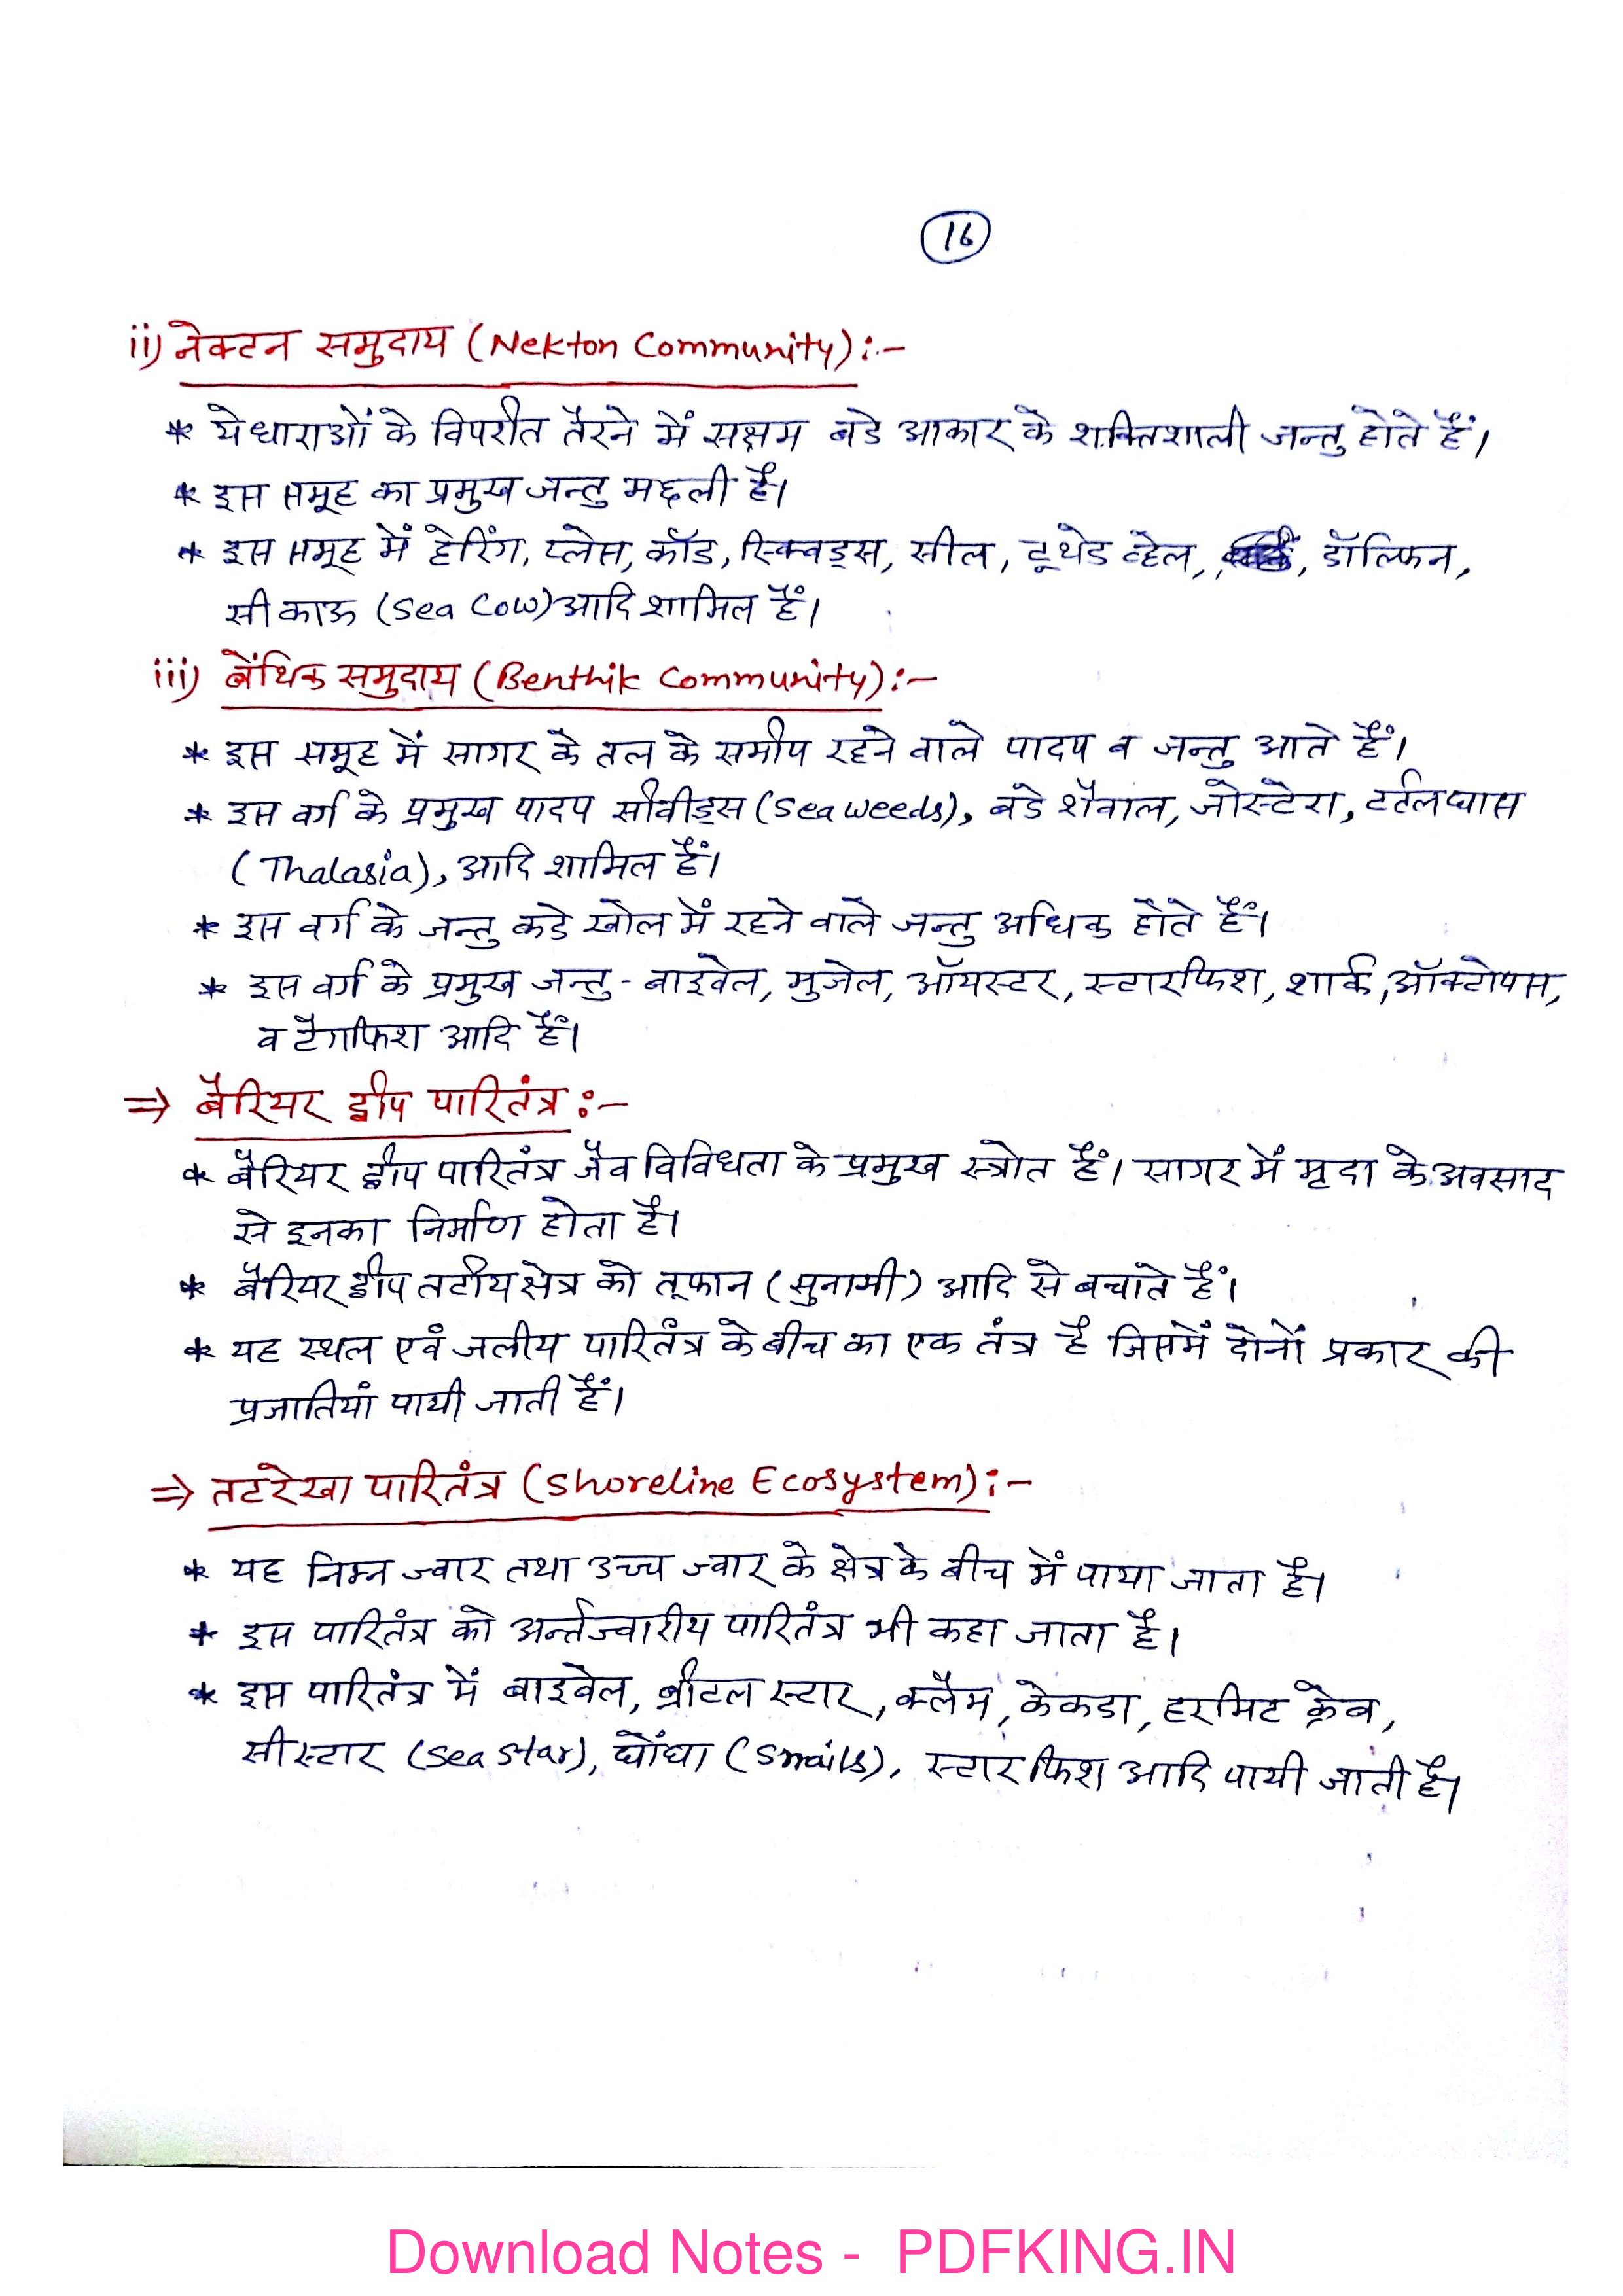 16
ii) नेक्टन समुदाय (Nekton Community):-
* ये धाराओं के विपरीत तैरने में सक्षम बडे आकार के शक्तिशाली जन्तु होते हैं।
* इस समूह का प्रमुख जन्तु मछली है।
* इस समूह में हेरिंग, प्लेस, कॉड, स्क्विड्स, सील, टूथेड व्हेल, डॉल्फिन,
सी काऊ (Sea Cow) आदि शामिल हैं।
iii) बेंथिक समुदाय (Benthik Community):-
* इस समूह में सागर के तल के समीप रहने वाले पादप व जन्तु आते हैं।
* इस वर्ग के प्रमुख पादप सीवीड्स (Sea weeds), बडे शैवाल, जोस्टेरा, टर्टलघास
(Thalasia), आदि शामिल हैं।
* इस वर्ग के जन्तु कडे खोल में रहने वाले जन्तु अधिक होते हैं।
* इस वर्ग के प्रमुख जन्तु - बाइवेल, मुजेल, ऑयस्टर, स्टारफिश, शार्क, ऑक्टोपस,
व टैगफिश आदि हैं।
⇒ बैरियर द्वीप पारितंत्र :-
* बैरियर द्वीप पारितंत्र जैव विविधता के प्रमुख स्त्रोत हैं। सागर में मृदा के अवसाद
से इनका निर्माण होता है।
* बैरियर द्वीप तटीय क्षेत्र को तूफान (सुनामी) आदि से बचाते हैं।
* यह स्थल एवं जलीय पारितंत्र के बीच का एक तंत्र है जिसमें दोनों प्रकार की
प्रजातियां पायी जाती हैं।
⇒ तटरेखा पारितंत्र (Shoreline Ecosystem):-
* यह निम्न ज्वार तथा उच्च ज्वार के क्षेत्र के बीच में पाया जाता है।
* इस पारितंत्र को अर्न्तज्वारीय पारितंत्र भी कहा जाता है।
* इस पारितंत्र में बाइवेल, ब्रीटल स्टार, क्लैम, केकडा, हरमिट क्रेब,
सी स्टार (Sea Star), घोंघा (Snails), स्टार फिश आदि पायी जाती है।
Download Notes - PDFKING.IN